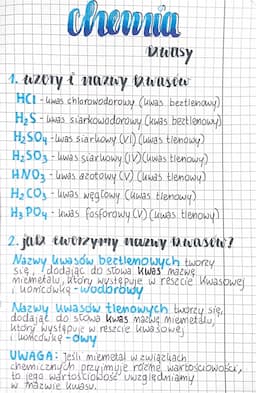 chemia
kwasy
1. wzory i nazwy kwasów
HCl - kwas chlorowodorowy (kwas beztlenowy)
H₂S - kwas siarkowodorowy (kwas beztlenowy)
H₂SO₄ - kwas siarkowy (VI) (kwas tlenowy)
H₂SO₃ - kwas siarkowy (IV) (kwas tlenowy)
HNO₃ - kwas azotowy (V) (kwas tlenowy)
H₂CO₃ - kwas węglowy (kwas tlenowy)
H₃PO₄ - kwas fosforowy (V) (kwas tlenowy)
2. jak tworzymy nazwy kwasów?
Nazwy kwasów beztlenowych tworzy
się, dodając do słowa kwas nazwę
niemetalu, który występuje w reszcie kwasowej
i końcówkę - wodorowy
Nazwy kwasów tlenowych tworzy się,
dodając do słowa kwas nazwę niemetalu,
który występuje w reszcie kwasowej
i końcówkę - owy
UWAGA: Jeśli niemetal w związkach
chemicznych przyjmuje różne wartościowości,
to jego wartościowość uwzględniamy
w nazwie kwasu.